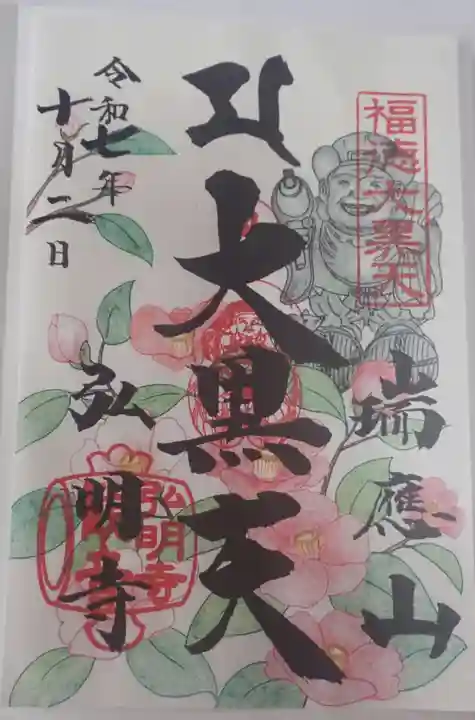 福徳大黒天
瑞應山
大黒天
令和七年
十月二日
弘明寺
弘明寺